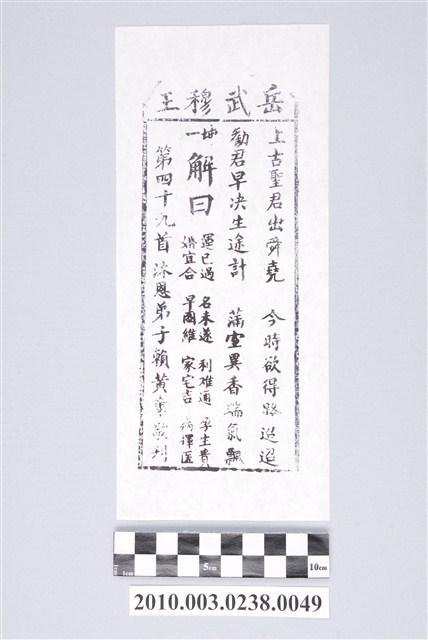 岳武穆王
上古聖君出舜堯　今時欲得路迢迢
勸君早决生途計　滿室異香瑞氣飄
坤一
解曰
運已過　名未遂　利难通　孕生貴
婚宜合　早圖維　家宅吉　病擇医
第四十九首　沐恩弟子賴黃章敬刊
1cm 5cm 10cm
2010.003.0238.0049